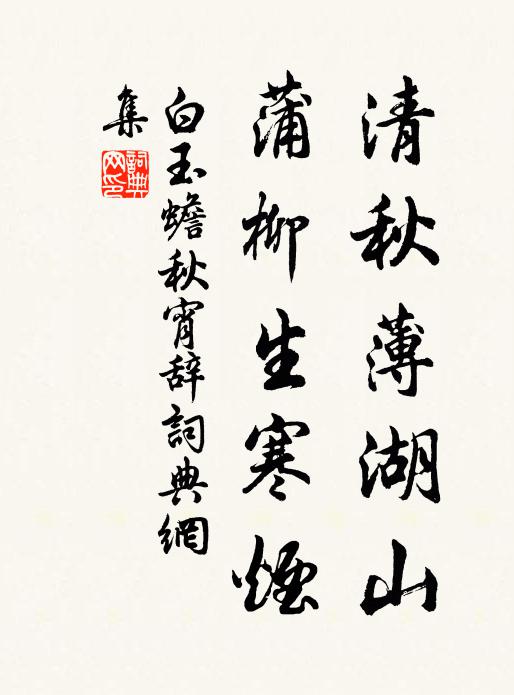 清秋薄湖山
蒲柳生寒煙
白玉蟾秋宵辞詞典網
集
詞典网印